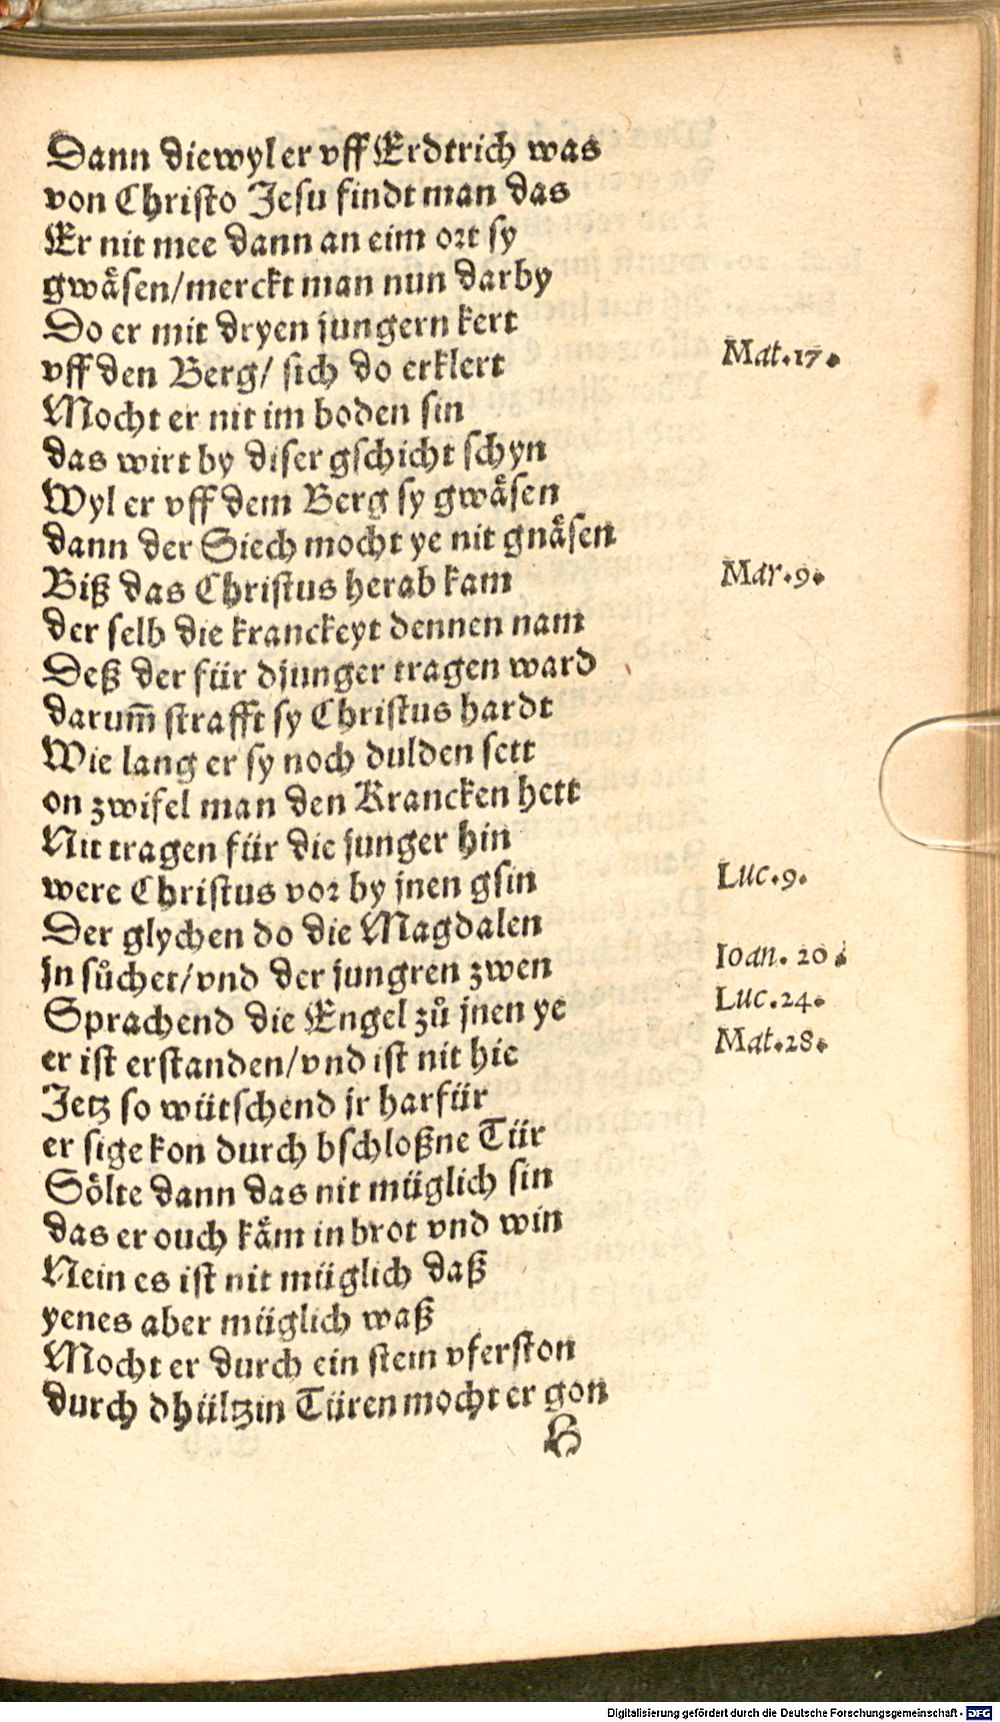 Dann diewyl er vff Erdtrich was
von Christo Jesu findt man das
Er nit mee dann an eim ort sy
gwåsen/merckt man nun darby
Do er mit dryen jungern kert
vff den Berg/ sich do erklert
Mat.17.
Mocht er nit im boden sin
das wirt by diser gschicht schyn
Wyl er vff dem Berg sy gwåsen
dann der Siech mocht ye nit gnåsen
Biß das Christus herab kam
Mar.9.
der selb die kranckeyt dennen nam
Deß der für djunger tragen ward
darum̄ strafft sy Christus hardt
Wie lang er sy noch dulden sett
on zwifel man den Krancken hett
Nit tragen für die junger hin
were Christus vor by jnen gsin
Luc.9.
Der glychen do die Magdalen
jn sůchet/vnd der jungren zwen
Ioan. 20.
Sprachend die Engel zů jnen ye
Luc.24.
er ist erstanden/vnd ist nit hie
Mat.28.
Jetz so wütschend jr harfür
er sige kon durch bschloßne Tür
Sölte dann das nit müglich sin
das er ouch kåm in brot vnd win
Nein es ist nit müglich daß
yenes aber müglich waß
Mocht er durch ein stein vferston
durch dhültzin Türen mocht er gon
H
Digitalisierung gefördert durch die Deutsche Forschungsgemeinschaft - DFG